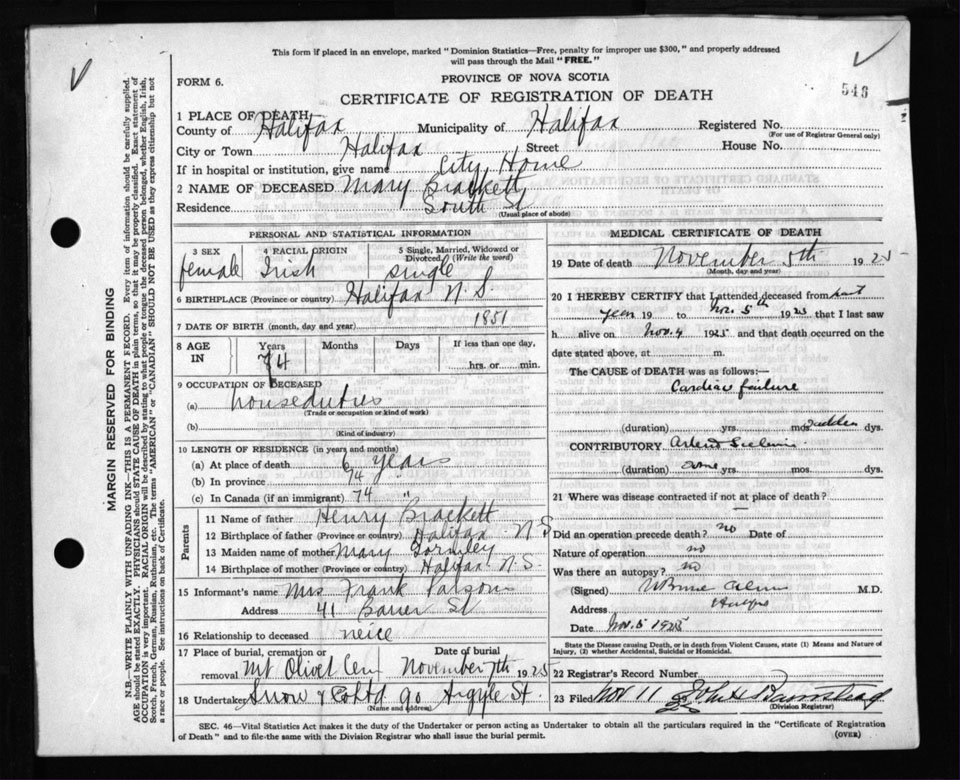 This form if placed in an envelope, marked "Dominion Statistics—Free, penalty for improper use $300," and properly addressed
will pass through the Mail "FREE."
FORM 6.
PROVINCE OF NOVA SCOTIA
548
CERTIFICATE OF REGISTRATION OF DEATH
1 PLACE OF DEATH
County of Halifax Municipality of Halifax Registered No.
(For use of Registrar General only)
City or Town Halifax Street House No.
If in hospital or institution, give name City Home
2 NAME OF DECEASED Mary Brackett
Residence South St
(Usual place of abode)
PERSONAL AND STATISTICAL INFORMATION
3 SEX 4 RACIAL ORIGIN 5 Single, Married, Widowed or Divorced. (Write the word)
female Irish single
6 BIRTHPLACE (Province or country) Halifax N.S
7 DATE OF BIRTH (month, day and year) 1851
8 AGE IN Years Months Days If less than one day,
74 hrs. or min.
9 OCCUPATION OF DECEASED
(a) houseduties
(Trade or occupation or kind of work)
(b)
(Kind of industry)
10 LENGTH OF RESIDENCE (in years and months)
(a) At place of death 6 years
(b) In province 74 "
(c) In Canada (if an immigrant) 74 "
Parents
11 Name of father Henry Brackett
12 Birthplace of father (Province or country) Halifax N S
13 Maiden name of mother Mary Gormley
14 Birthplace of mother (Province or country) Halifax N.S.
15 Informant's name Mrs Frank Parsons
Address 41 St
16 Relationship to deceased neice
17 Place of burial, cremation or removal Date of burial
Mt Olivet Cem November 7th 1925
18 Undertaker Snow & Co Ltd 90 Argyle St.
(Name and address)
MEDICAL CERTIFICATE OF DEATH
19 Date of death November 5th 1925
(Month, day and year)
20 I HEREBY CERTIFY that I attended deceased from last
year 19 to Nov. 5th 1925 that I last saw
h alive on Nov. 4 1925 and that death occurred on the
date stated above, at m.
The CAUSE of DEATH was as follows:—
Cardiac failure
(duration) yrs. mos. sudden dys.
CONTRIBUTORY
(duration) some yrs. mos. dys.
21 Where was disease contracted if not at place of death?
—
Did an operation precede death? no Date of
Nature of operation no
Was there an autopsy? no
(Signed) M.D.
Address Halifax
Date Nov. 5 1925
State the Disease causing Death, or in death from Violent Causes, state (1) Means and Nature of
Injury, (2) whether Accidental, Suicidal or Homicidal.
22 Registrar's Record Number
23 Filed Nov 11 John H Barnstead
(Division Registrar)
SEC. 46—Vital Statistics Act makes it the duty of the Undertaker or person acting as Undertaker to obtain all the particulars required in the "Certificate of Registration
of Death" and to file the same with the Division Registrar who shall issue the burial permit.
(OVER)
MARGIN RESERVED FOR BINDING
N.B.—WRITE PLAINLY WITH UNFADING INK—THIS IS A PERMANENT RECORD. Every item of information should be carefully supplied.
AGE should be stated EXACTLY. PHYSICIANS should STATE CAUSE OF DEATH in plain terms, so that it may be properly classified. Exact statement of
OCCUPATION is very important. RACIAL ORIGIN will be described by stating to what people or tongue the deceased person belonged, whether English, Irish,
Scotch, French, German, Russian, Ruthenian, etc. The terms "AMERICAN" or "CANADIAN" SHOULD NOT BE USED as they express citizenship but not
a race or people. See instructions on back of Certificate.